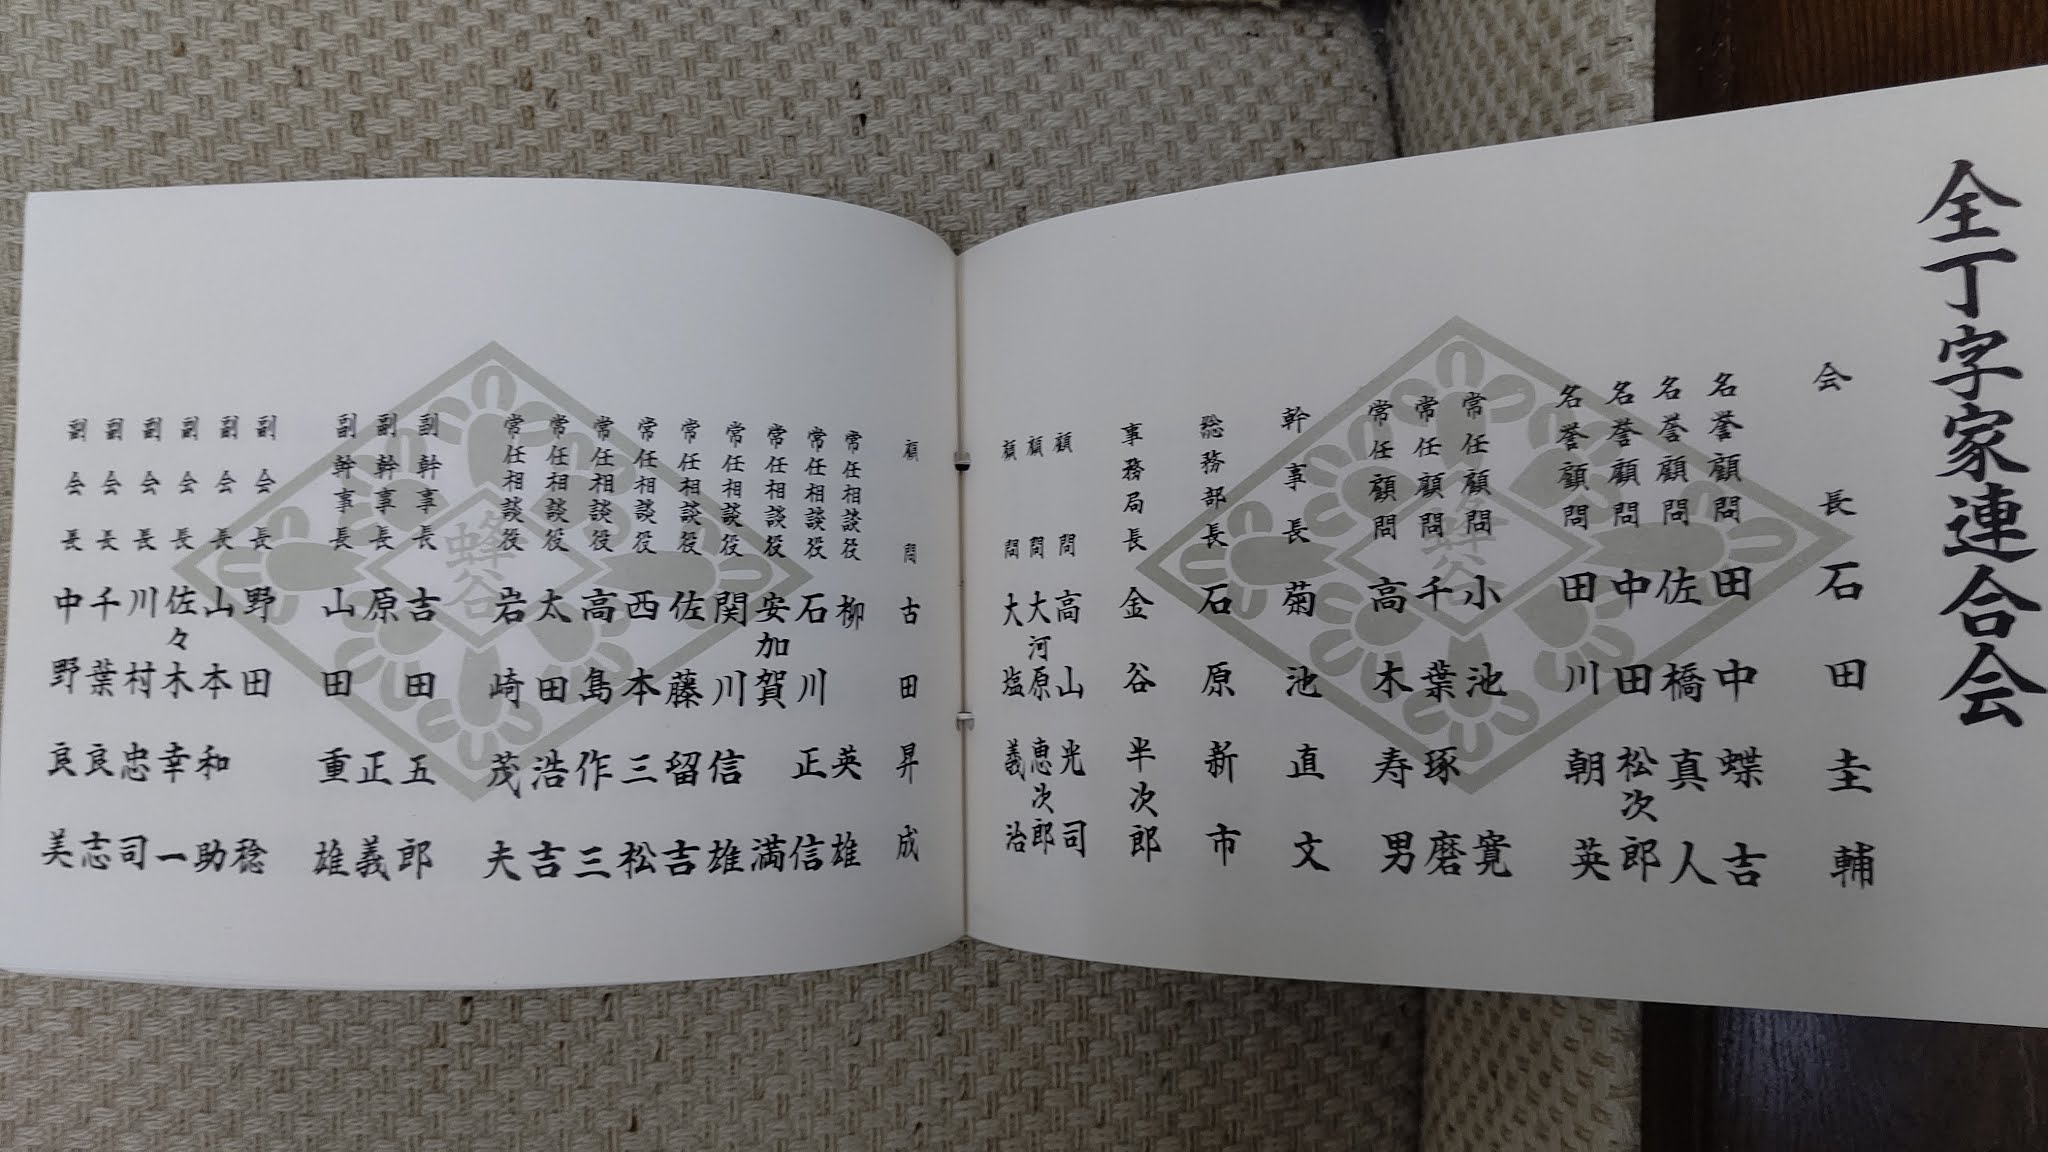 全丁字家連合会
会長 石田圭輔
名誉顧問 田中蝶吉
名誉顧問 佐橋真人
名誉顧問 中田松次郎
名誉顧問 田川朝英
常任顧問 小池寛
常任顧問 千葉琢磨
常任顧問 高木寿男
幹事長 菊池直文
総務部長 石原新市
事務局長 金谷半次郎
顧問 高山光司
顧問 大河原恵次郎
顧問 大塩義治
顧問 古田昇成
常任相談役 柳英雄
常任相談役 石川正信
常任相談役 安加賀満
常任相談役 関川信雄
常任相談役 佐藤留吉
常任相談役 西本三松
常任相談役 高島作三
常任相談役 太田浩吉
常任相談役 岩崎茂夫
副幹事長 吉田五郎
副幹事長 原正義
副幹事長 山田重雄
副会長 野田稔
副会長 山本和助
副会長 佐々木幸一
副会長 川村忠司
副会長 千葉良志
副会長 中野良美
蜂谷
蜂谷